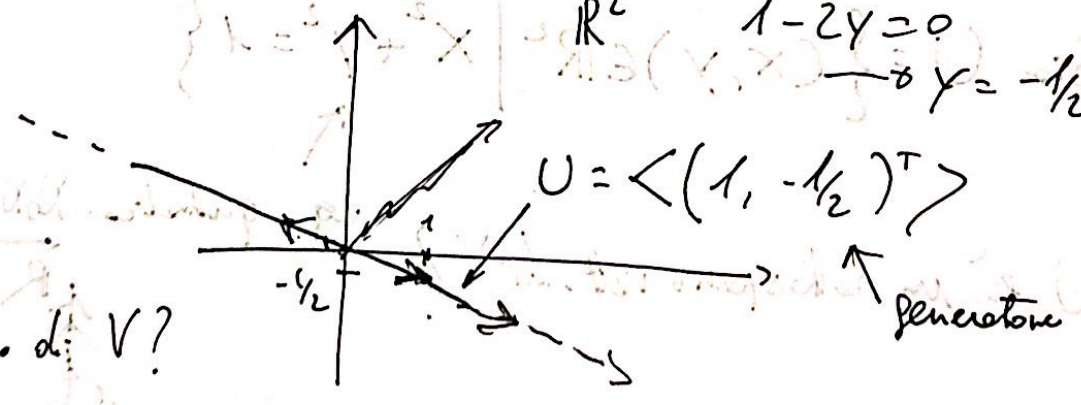 ℝ² 1-2y=0
→ y = -1/2
U = <(1, -1/2)ᵀ>
1
-1/2
generatore
. di V?